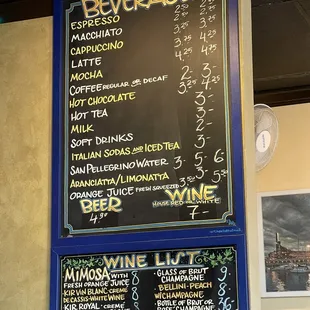 BEVERAG
ESPRESSO
MACCHIATO
CAPPUCCINO 3.75 4.25
LATTE 4.25 4.75
MOCHA
COFFEE REGULAR OR DECAF 2- 3-
HOT CHOCOLATE 3.25 4.25
HOT TEA 3-
MILK 3-
SOFT DRINKS 2-
ITALIAN SODAS AND ICED TEA 3-
SAN PELLEGRINO WATER 3- 5- 6-
ARANCIATA/LIMONATTA 3-
ORANGE JUICE FRESH SQUEEZED 3.50 5.50
BEER WINE
HOUSE RED OR WHITE
4.50 7-
WINE LIST
MIMOSA WITH
FRESH ORANGE JUICE 8
KIR VIN BLANC-CREME
DE CASSIS-WHITE WINE 8
KIR ROYAL-CREME
GLASS OF BRUT
CHAMPAGNE 9-
BELLINI-PEACH
W/CHAMPAGNE 8-
BOTTLE OF BRUT OR
ROSE CHAMPAGNE 36